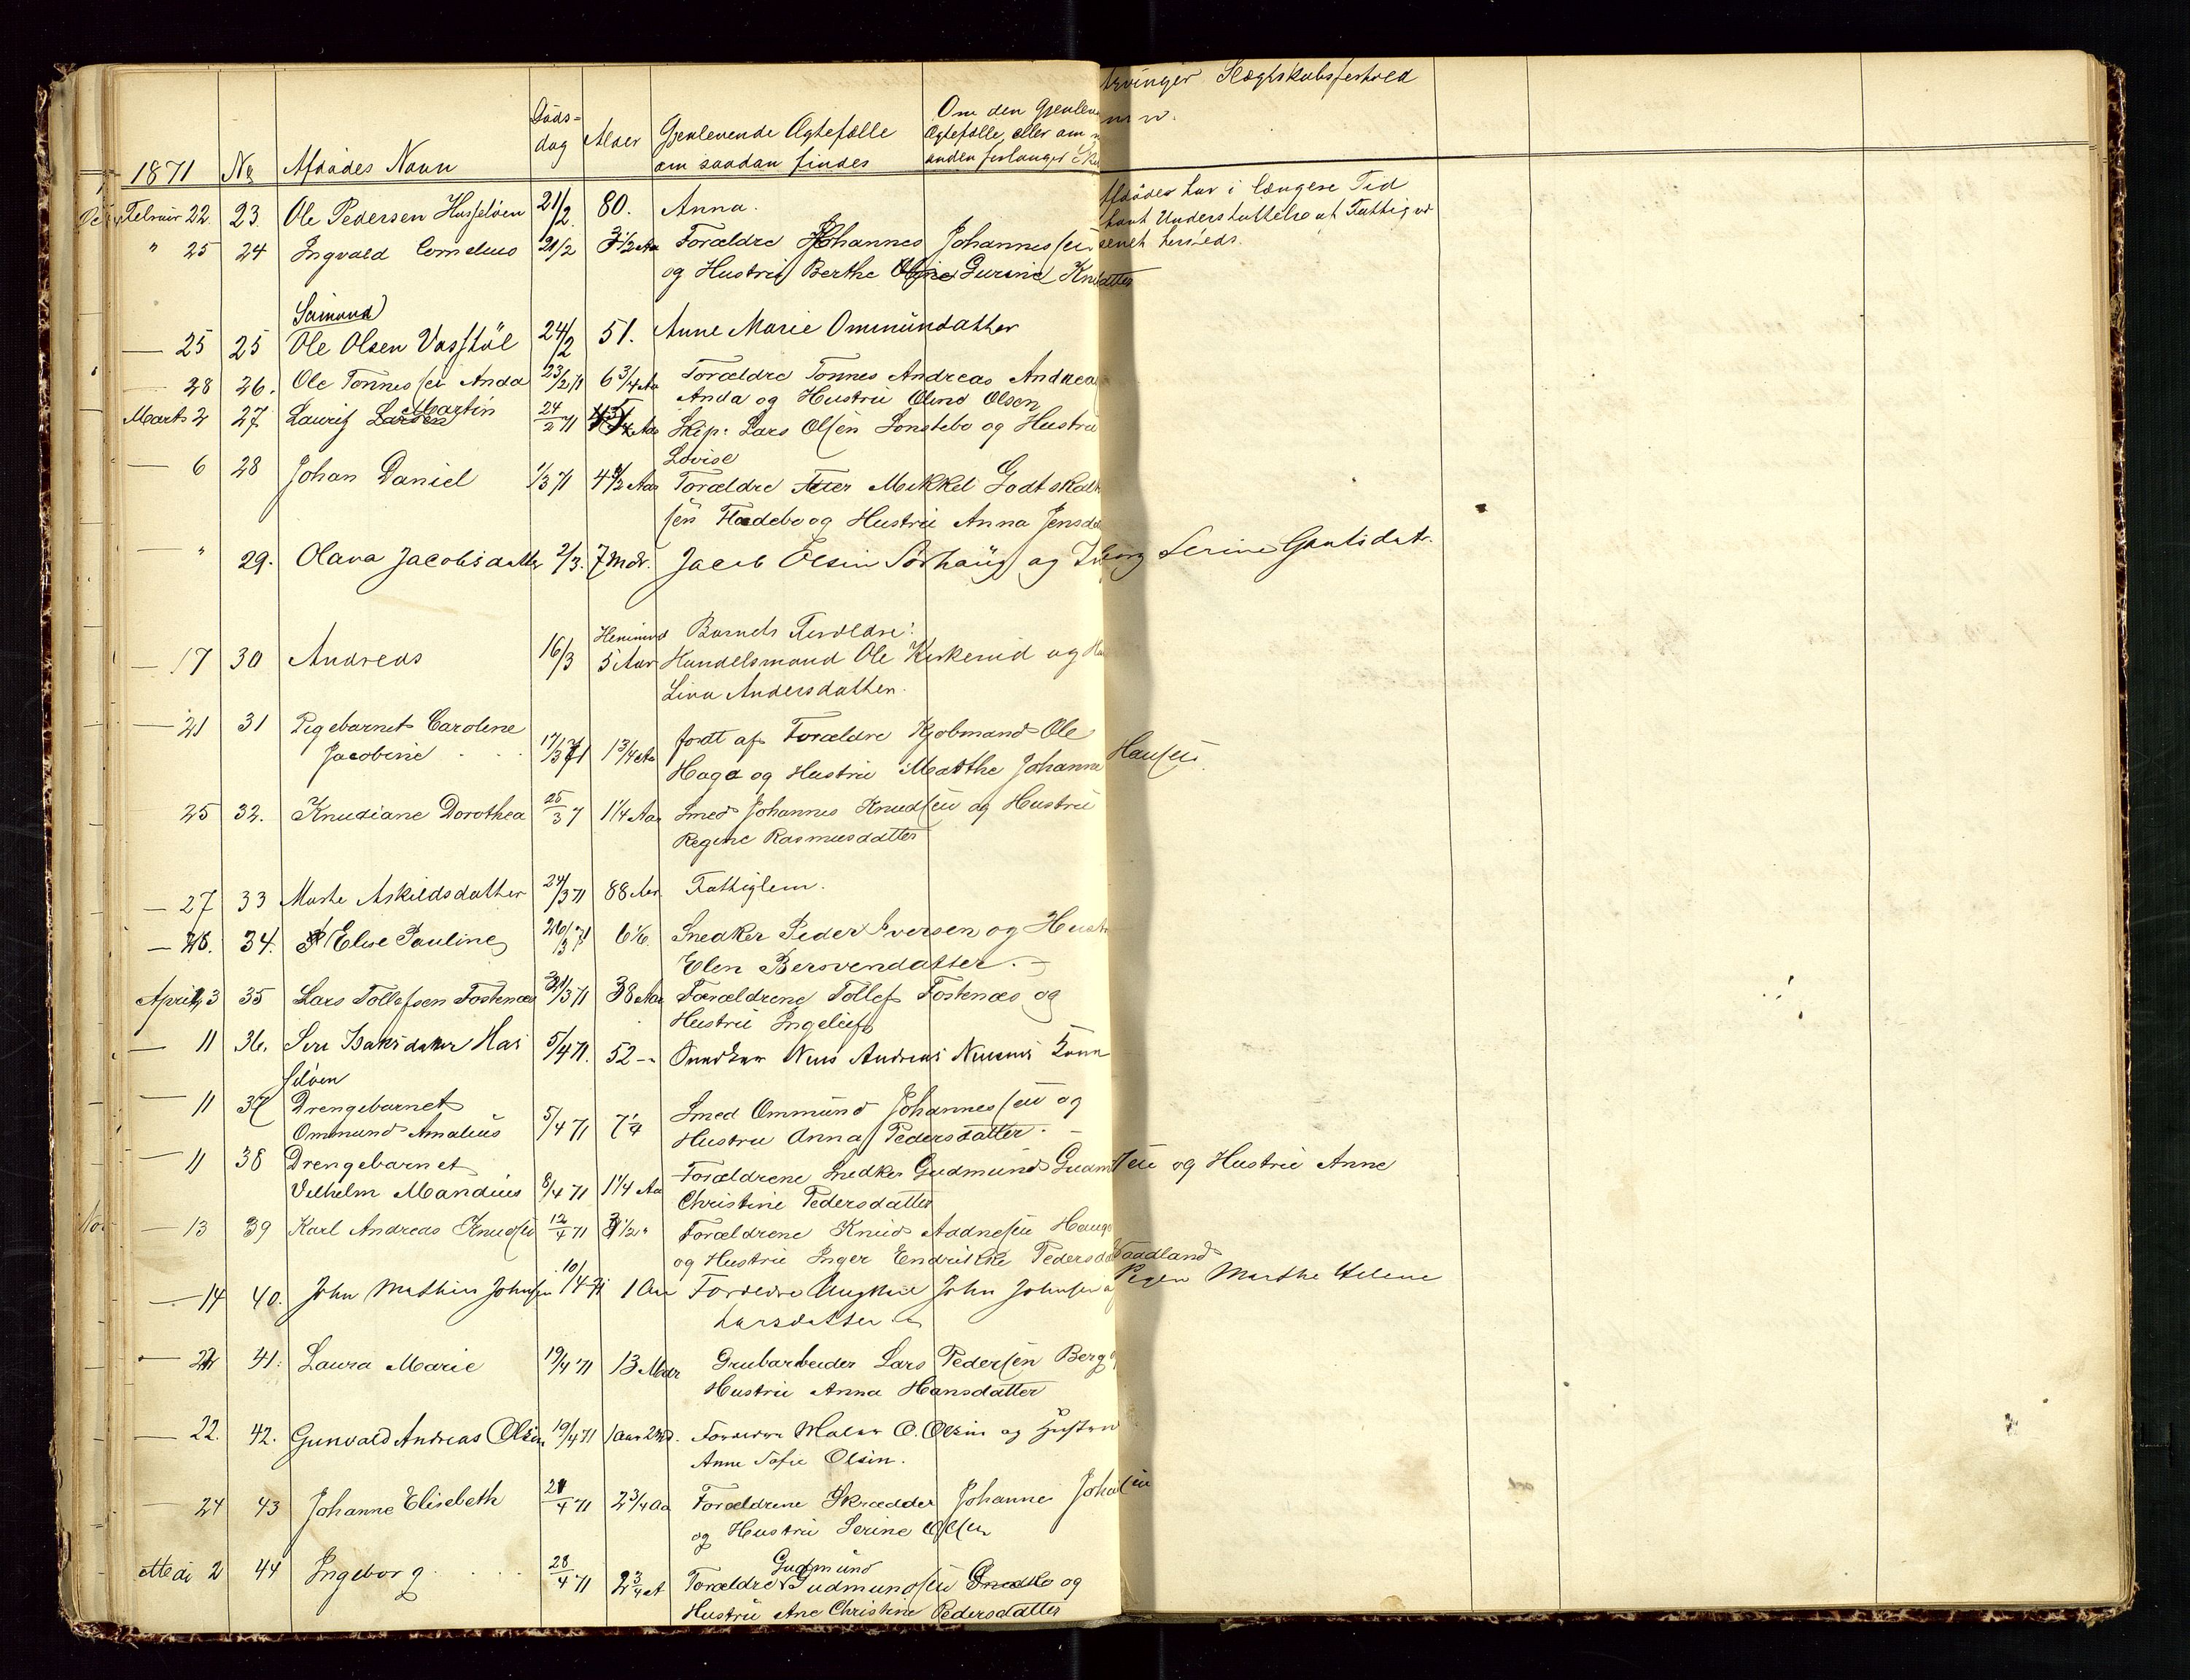 1871 No Afdødes Navn Døds-dag Alder Gjenlevende Ægtefælle om saadan findes Om den Gjenlev Ægtefælle, eller om anden forlanger
Slægtskabsforhold
m. v.
Februar 22. 23. Ole Pedersen Hasseløen 21/2. 80. Anna.
Afdøde har i længere Tid
havt Understøttelse af Fattigv
" 25 24 Ingvald Cornelius 21/2 3 1/2 Aar Forældre Johannes Johannessen
og Hustrü Berthe Gurine
Sømand
— 25 25 Ole Olsen Vasstöl 24/2 51. Anne Marie Ommündatter
— 28 26. Ole Tonnessen Anda 23/2 71 6 3/4 Aar Forældre Tonnes Andreas Andrea
Anda og Hustrü Olene Olsen
Marts 2 27. Lauritz Martin 24/2 71 Aar Skip. Lars Olsen Sonstebo og Hustrü
Lovise
— 6 28 Johan Daniel 1/3 71 4 1/2 Aar Forældre Mikkel Godtskalk
sen Fladebo og Hustrü Anna Jensda
— " 29. Olava Jacobsdatter 2/3. 7 Mdr. Jacob Olsen Sørhaüg og Serine Gautsdat.
— 17 30 Andreas 16/3 5 Aar Barnets Forældre:
Handelsmand Ole og
Lina Andersdatter.
— 21 31 Pigebarnet Caroline
Jacobine 17/3 71 1 3/4 Aar født af Forældre Kjøbmand Ole
Haga og Hustrü Marthe Johanne Hansen.
25 32. Knudiane Dorothea 25/3 71 1 1/4 Aar Smed Johannes Knudsen og Hustrü
Regine Rasmusdatter
— 27 33 Marte Askildsdatter 24/3 71 88 Aar Fattiglem.
— 28. 34. Elise Pauline 26/3 71 6 1/6. Snedker Peder Iversen og Hustr
Elen Bersvendatter.
April 3 35 Lars Tollefsen Fostenæs 31/3 71 38 Aar Forældrene Tollef Fostenæs og
Hustrü Ingelief
— 11 36. Siri Isaksdatter Has
seløen 5/4 71. 52 Andreas
— 11 37 Drengebarnet
Ommund Amalius 5/4 71 7 1/4 Smed Ommünd Johannessen og
Hustrü Anna Pedersdatter.
— 11 38 Drengebarnet
Vilhelm Mandius 8/4 71 1 1/4 Aar Forældrene Snedker Gudmünd Gudm sen og Hustrü Anne
Christine Pedersdatter
— 13 39 Karl Andreas Knudsen 12/4 71 1/2 Forældrene Knüd Aadnesen Haug
og Hustrü Inger Endrikke Pedersda Vaadland
— 14 40. John Mathias Johnsen 10/4 71 1 Aar Forældre John Johnsen Pigen Marthe Helene
Larsdatter
— 22 41. Laura Marie 19/4 71 13 Mdr Grubarbeider Lars Pedersen Berg
Hustrü Anna Hansdatter
— 22. 42. Gunvald Andreas Olsen 19/4 71 1 Aar 2 Md. Forældre Maler O. Olsen og Hustru
Anne Tofie Olsen.
— 24 43 Johanne Elisebeth 21/4 71 2 3/4 Aa Forældrene Skrædder Johannes
og Hustrü Serine Olsen
Mai 2 44 Ingeborg 28/4 71 2 3/4 A Forældre Gudmünd Gudmundsen og
Hustrü Ane Christine Pedersdatter